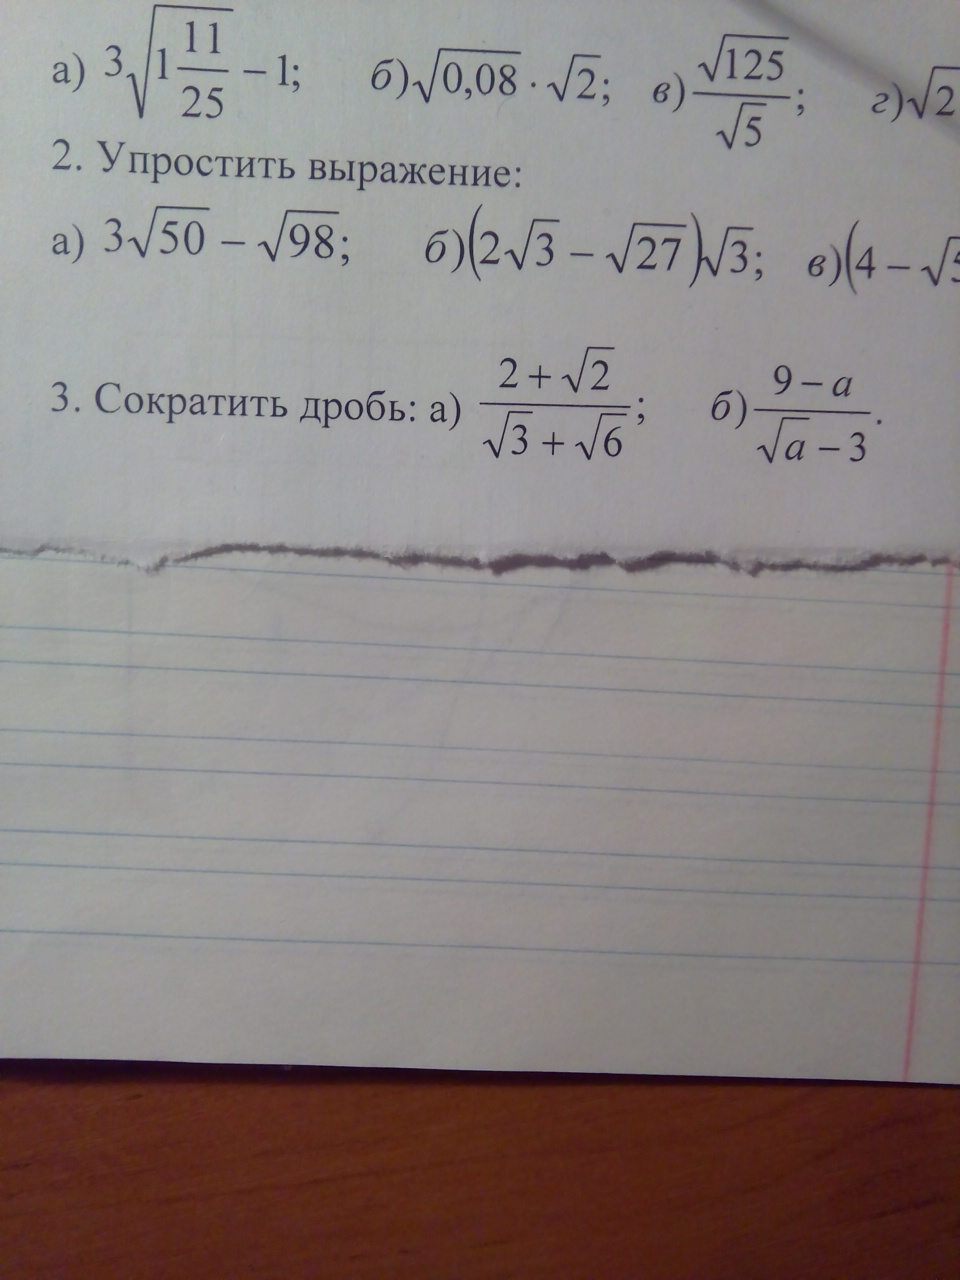 а) 3√(1 11/25) − 1; б) √0,08 · √2; в) √125/√5; г) √2
2. Упростить выражение:
а) 3√50 − √98; б) (2√3 − √27)√3; в) (4 − √5
3. Сократить дробь: а) (2 + √2)/(√3 + √6); б) (9 − a)/(√a − 3).